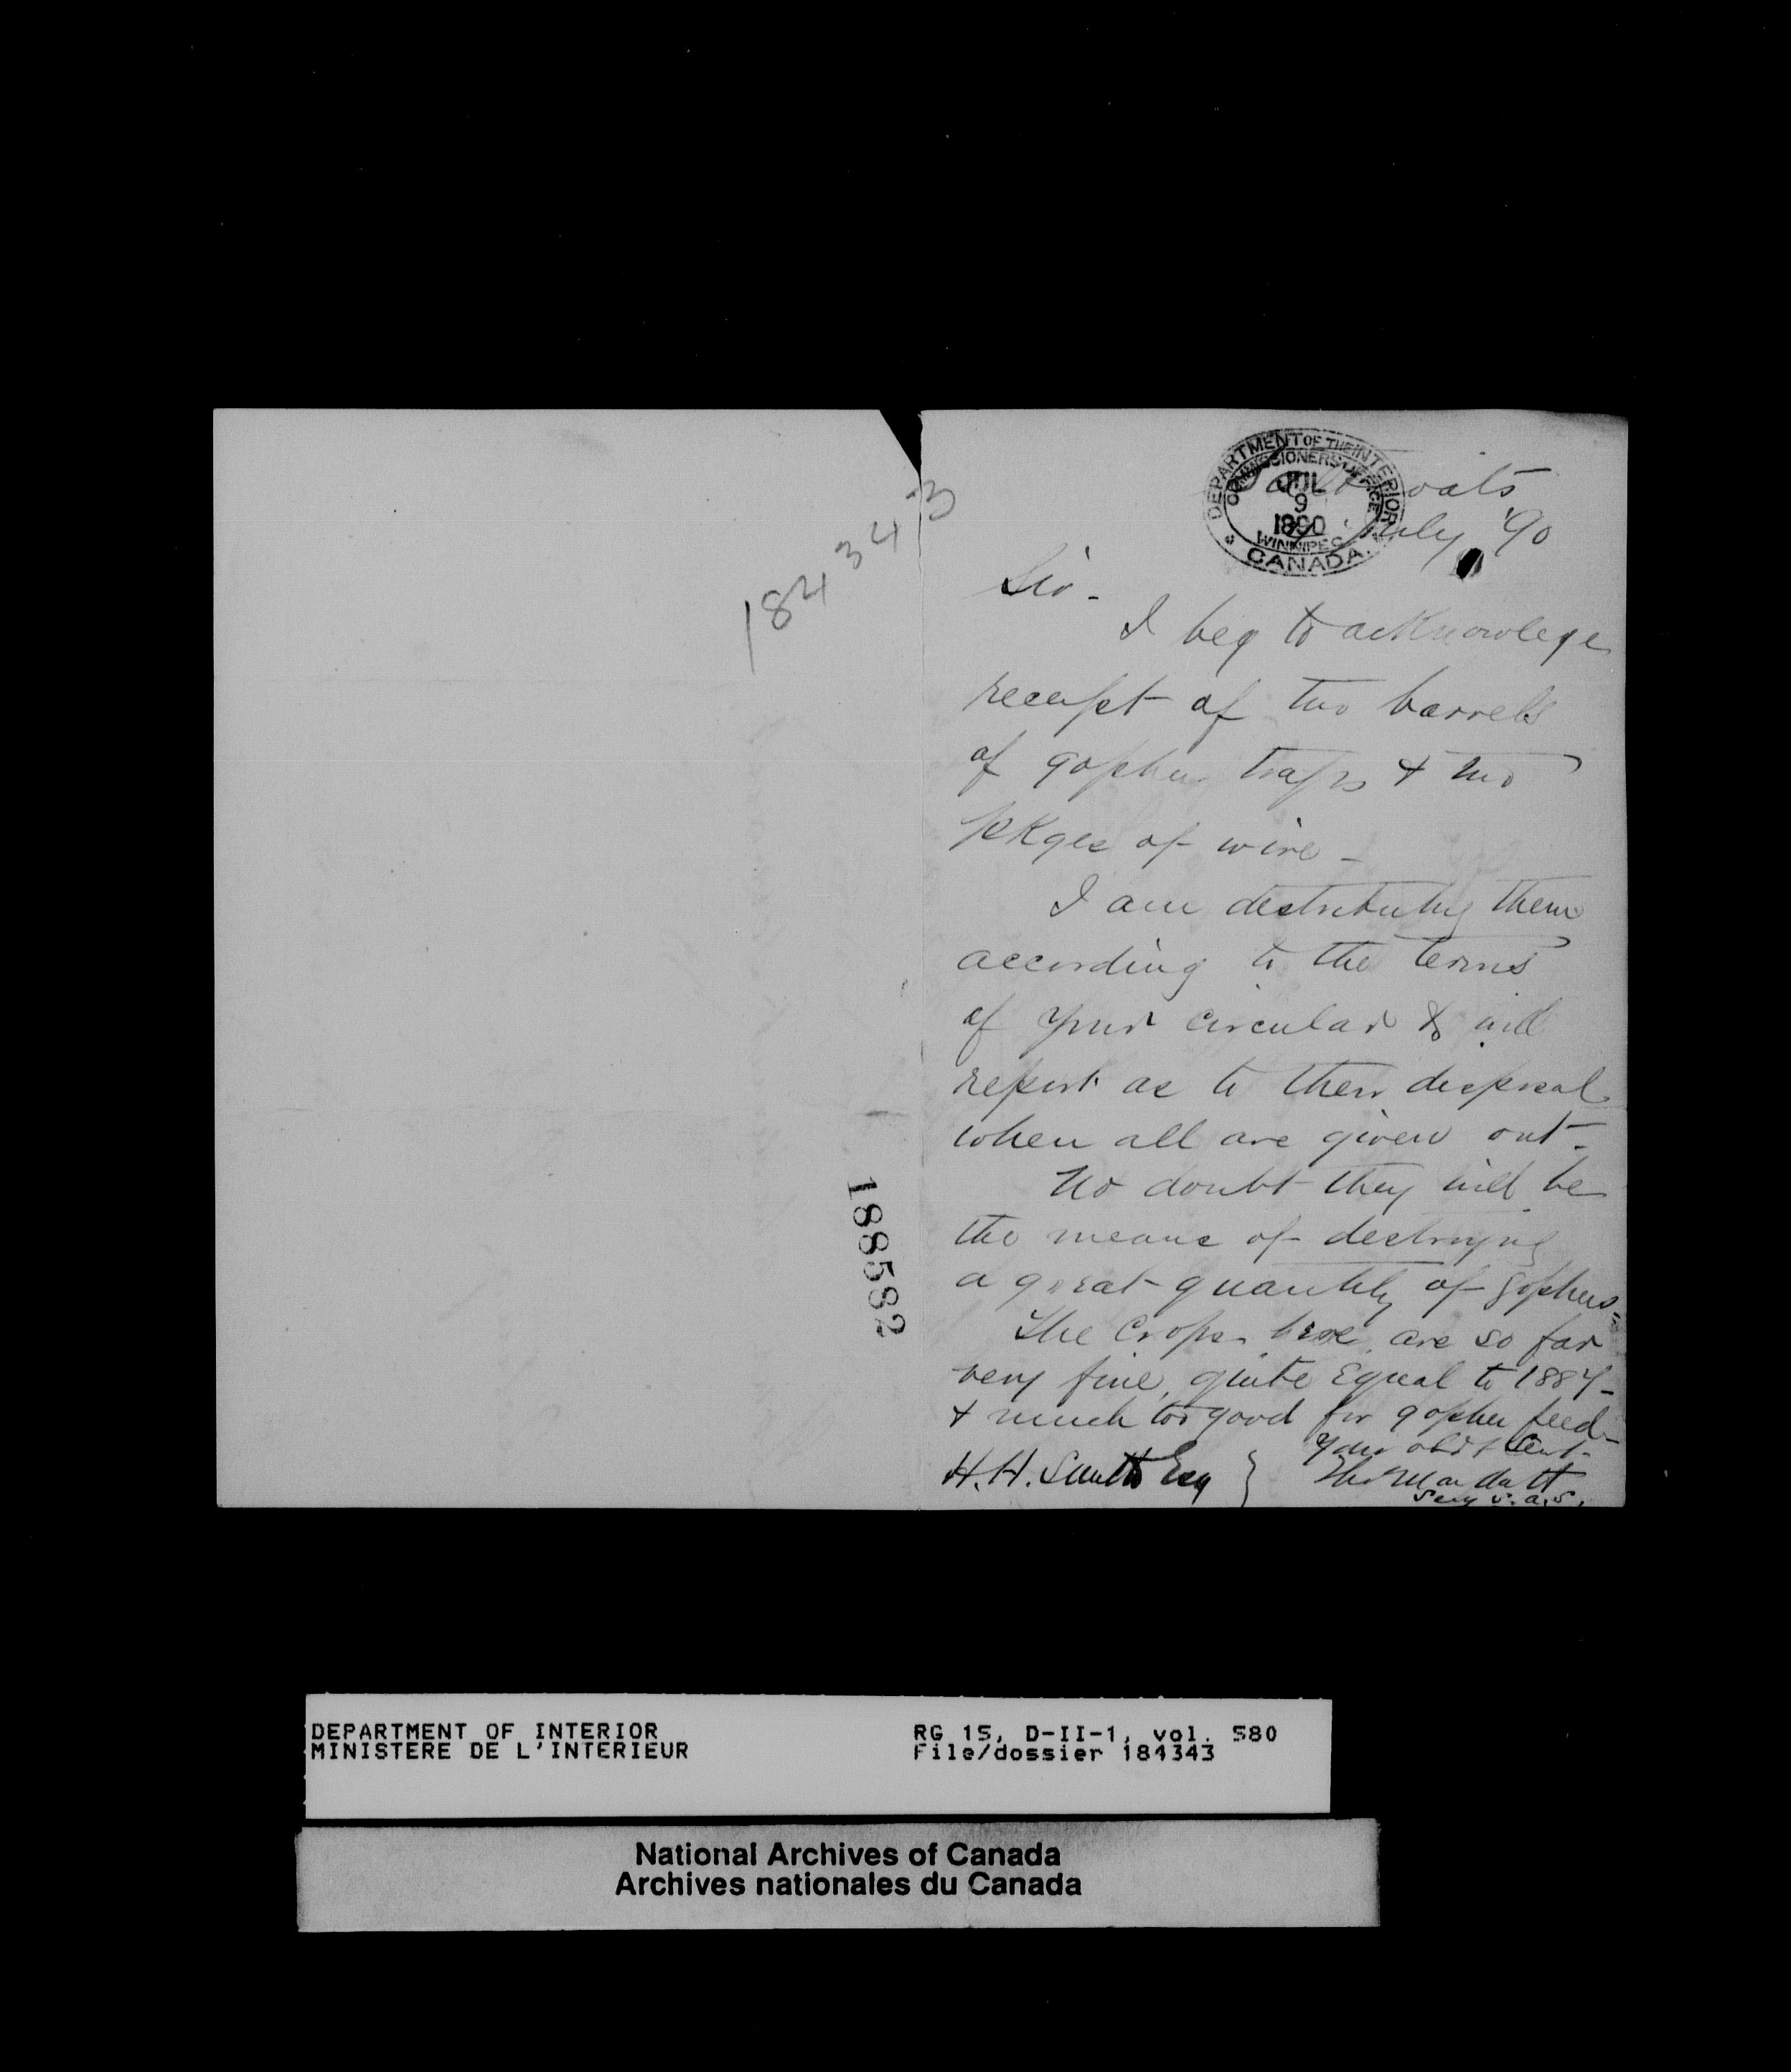 184343
188582
DEPARTMENT OF THE INTERIOR
COMMISSIONERS OFFICE
JUL
9
1890
WINNIPEG
CANADA.
July '90
Sir -
I beg to acknowlege
receipt of two barrels
of gopher traps & two
pkges of wire -
I am distributing them
according to the terms
of your circular & will
report as to their disposal
when all are given out -
No doubt they will be
the means of destroying
a great quantity of gophers -
The Crops here are so far
very fine, quite Equal to 1887 -
& much too good for gopher feed -
Your obdt Servt -
H. H. Smith Esq }
Secy S. A. S.
DEPARTMENT OF INTERIOR
MINISTERE DE L'INTERIEUR
RG 15, D-II-1, vol. 580
File/dossier 184343
National Archives of Canada
Archives nationales du Canada